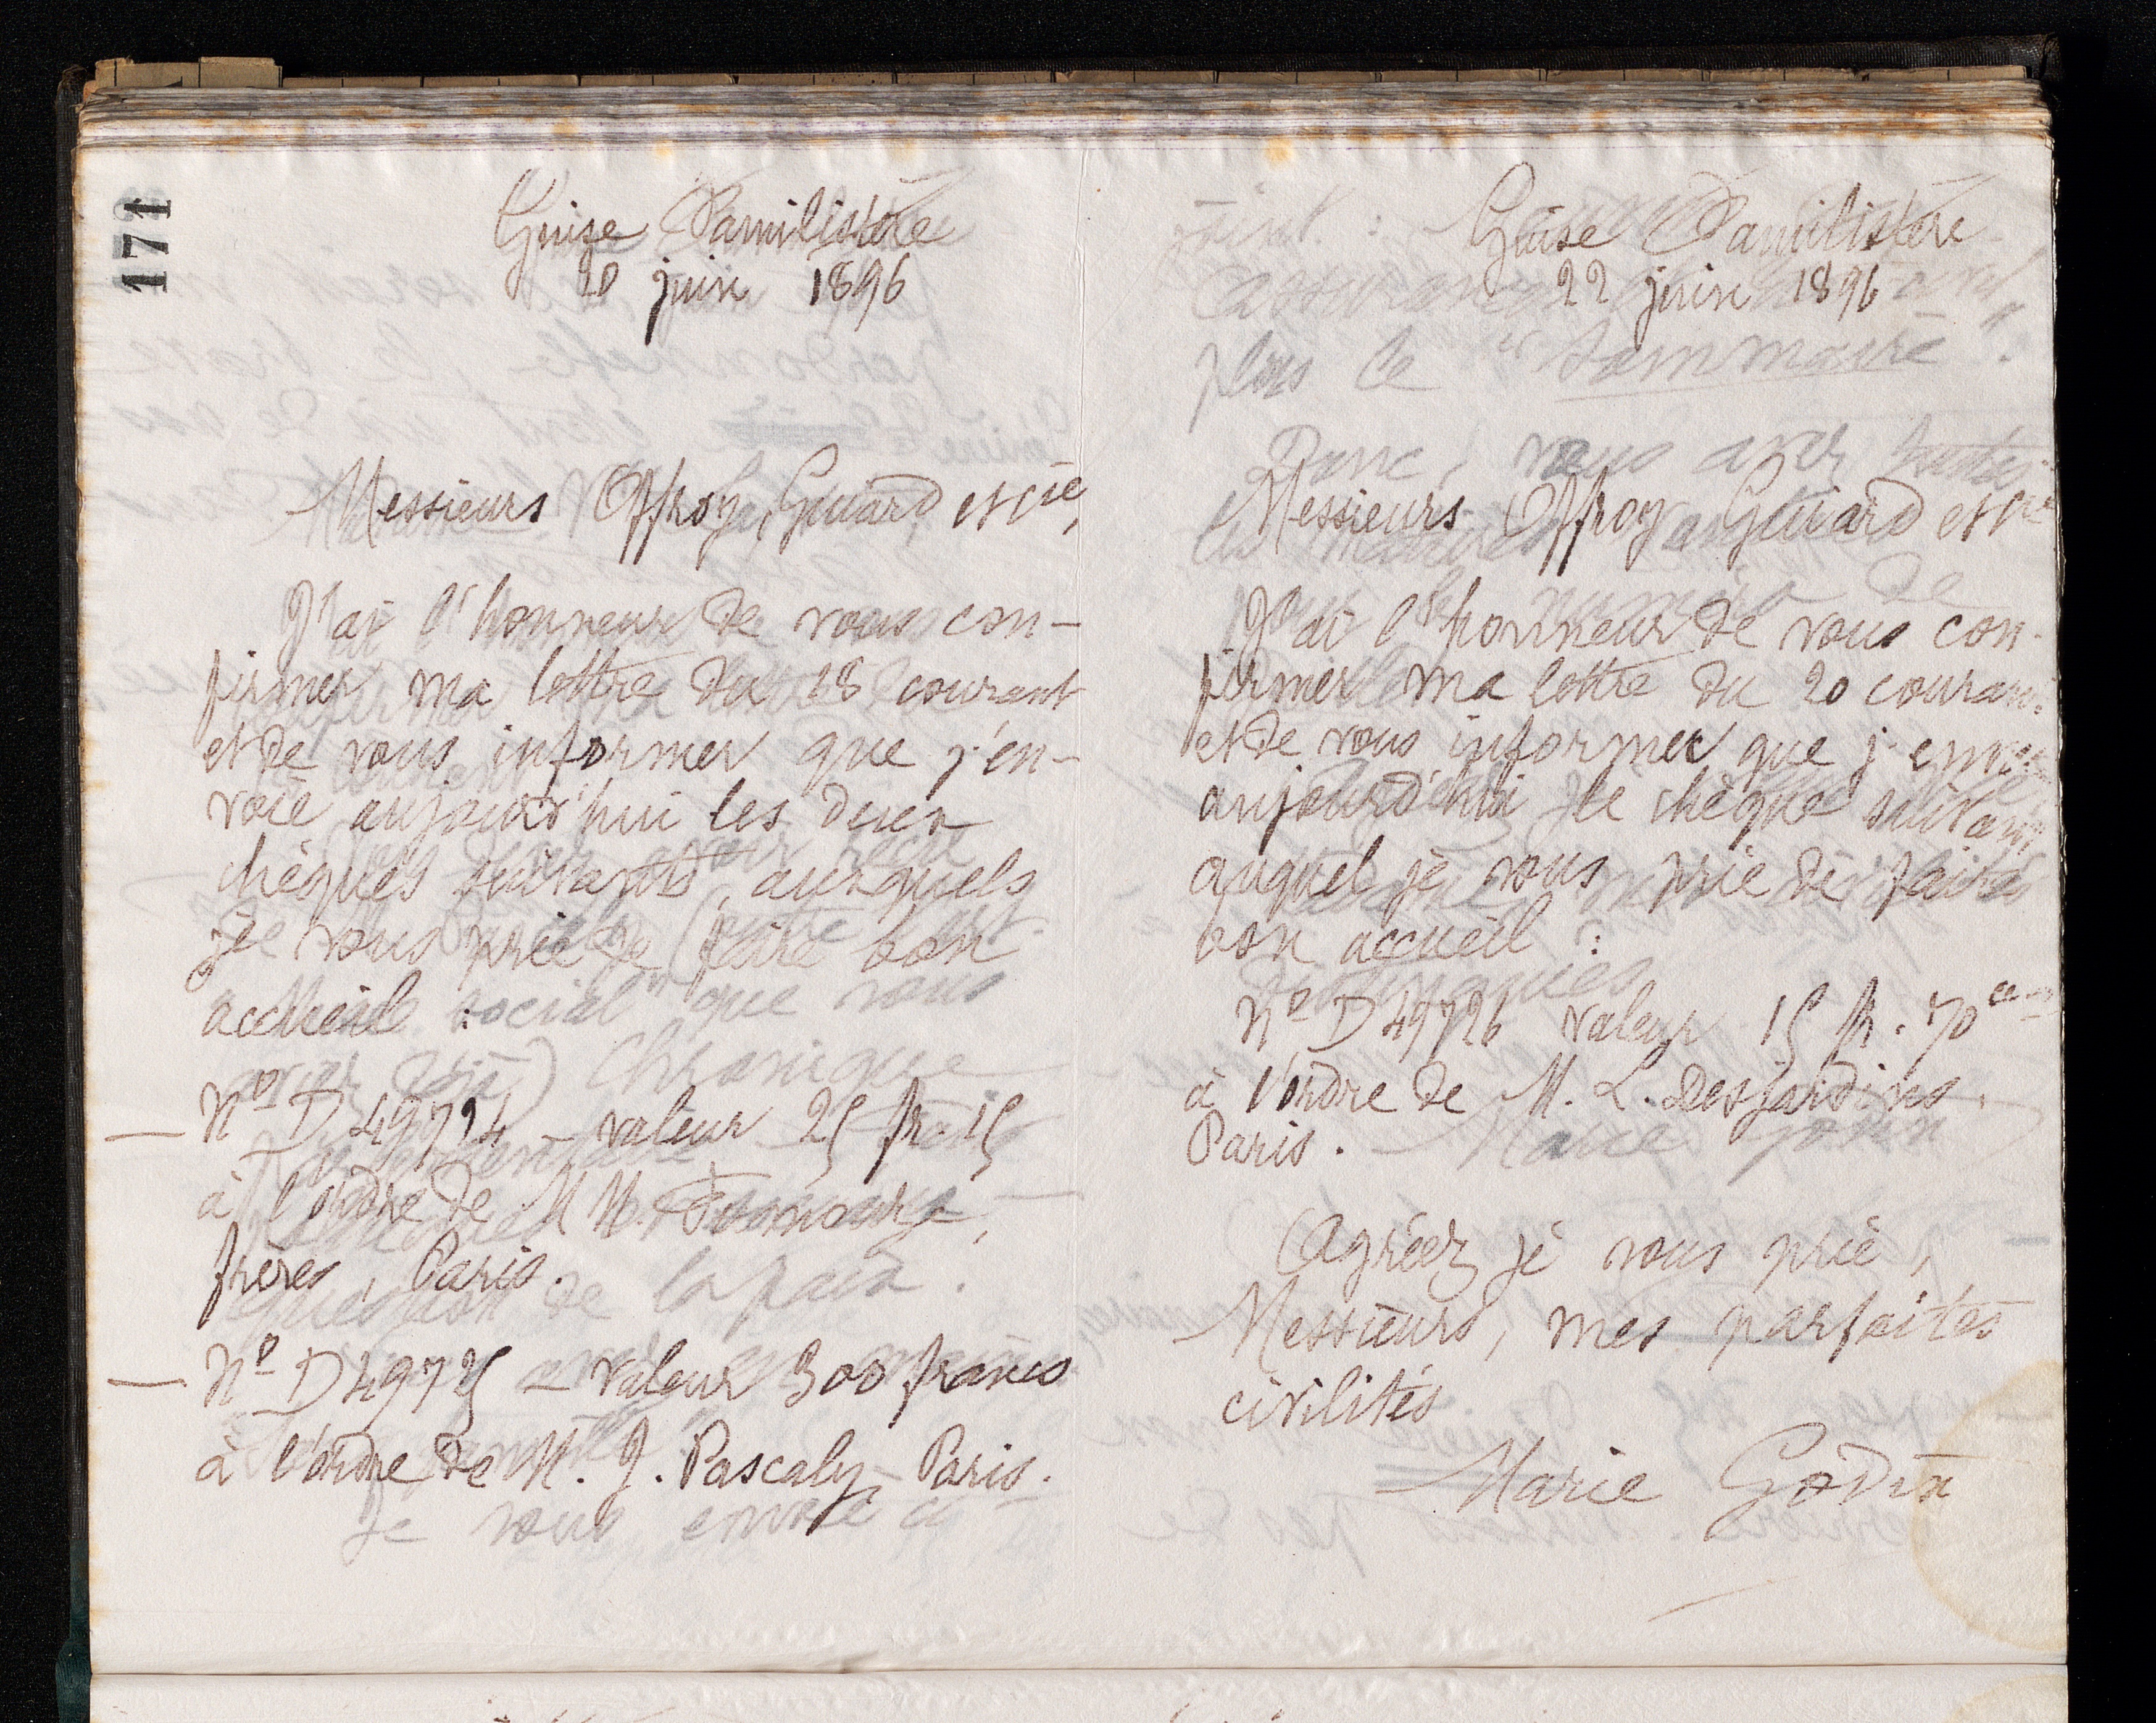 171
Guise Familistère
20 juin 1896
Messieurs Offroy, Guiard et Cie,
J'ai l'honneur de vous con-
firmer ma lettre du 18 courant
et de vous informer que j'en-
voie aujourd'hui les deux
chèques suivants, auxquels
je vous prie de faire bon
accueil :
— No D 49724 – valeur 25 fr. 15
à l'ordre de MM.
frères, Paris.
— No D 49725 – valeur 300 francs
à l'ordre de M. J. Pascaly, Paris.
Guise Familistère
22 juin 1896
Messieurs Offroy Guiard et Cie
J'ai l'honneur de vous con-
firmer ma lettre du 20 courant
et de vous informer que j'envoie
aujourd'hui le chèque suivant
auquel je vous prie de faire
bon accueil :
No D 49726 valeur 15 fr. 70 ces
à l'ordre de M. L. Desjardins,
Paris.
Agréez je vous prie,
Messieurs, mes parfaites
civilités
Marie Godin